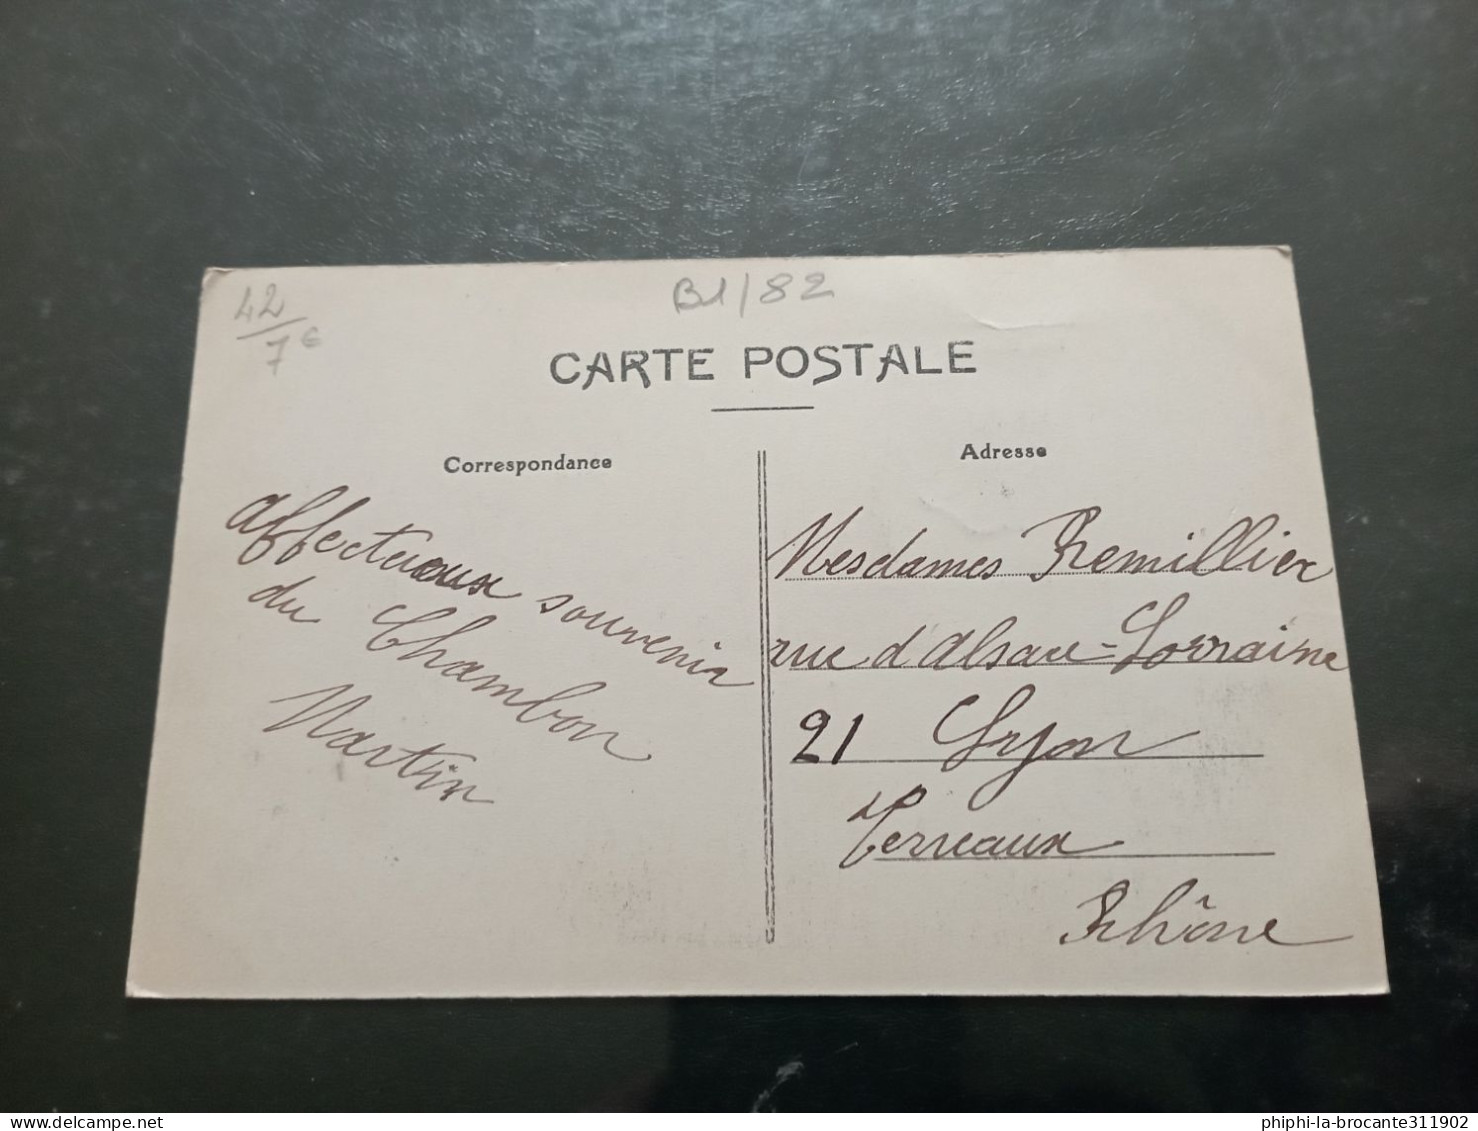 42
7€
B1/82
CARTE POSTALE
Correspondance
Adresse
affectueux souvenir
du Chambon
Martin
Mesdames Remillier
rue d'alsace-Lorraine
21 Lyon
Terreaux
Rhône
delcampe.net
phiphi-la-brocante311902